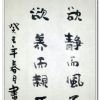 欲靜而風不
欲養而親不
癸年春月書